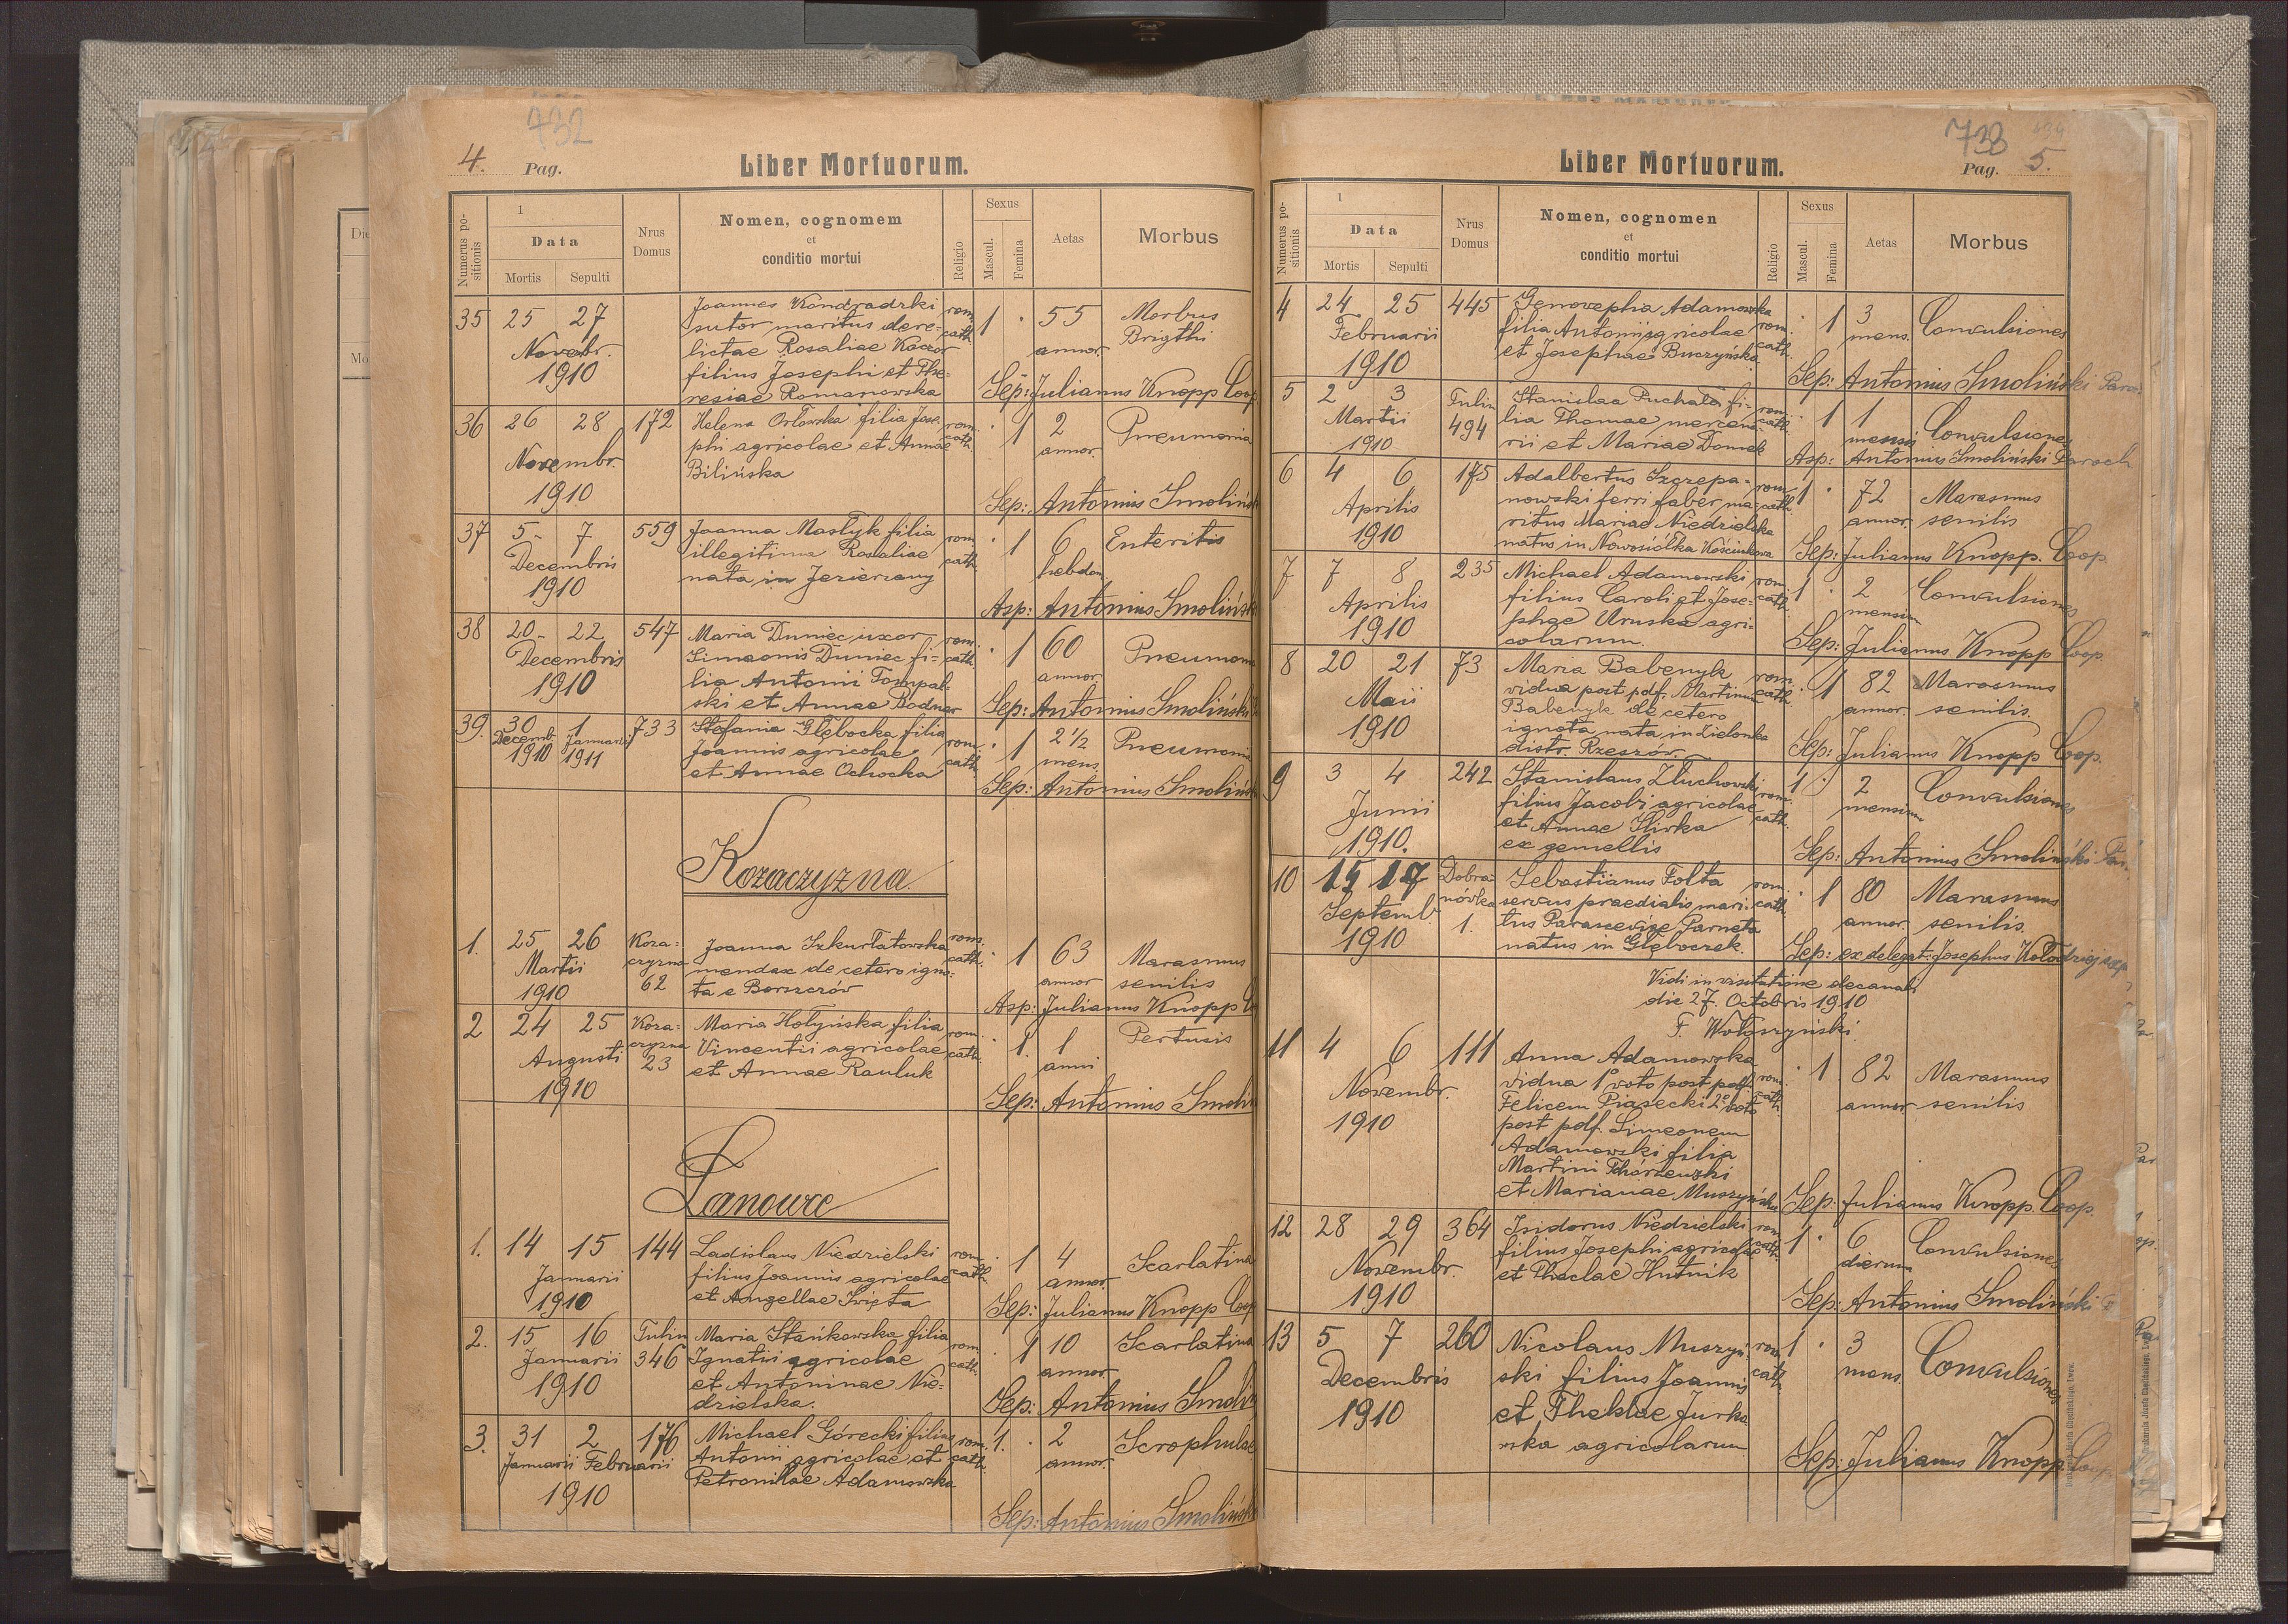 732
4. Pag.
Liber Mortuorum.
Numerus po-
sitionis
1
Data
Mortis Sepulti
Nrus
Domus
Nomen, cognomem
et
conditio mortui
Religio
Sexus
Mascul.
Femina
Aetas
Morbus
35 25 27 Joannes Kondradzki rom. 1 . 55 Morbus
Novembr. sutor maritus dere- cath. annor. Brigthi
1910 lictae Rosaliae Kaczor
filius Josephi et The-
resiae Romanowska Sep: Julianus Knopp Coop
36 26 28 172 Helena Orłowska filia Jose- rom. . 1 2 Pneumonia
Novembr. phi agricolae et Annae cath. annor.
1910 Bilińska
Sep: Antonius Smolińsk
37 5 - 7 559 Joanna Mastyk filia rom. . 1 6 Enteritis
Decembris illegitima Rosaliae cath. hebdom.
1910 nata in Jezierzany
Asp: Antonius Smolińsk
38 20 - 22 547 Maria Duniec uxor rom. . 1 60 Pneumonia
Decembris Simeonis Duniec fi- cath. annor.
1910 lia Antonii Tompal-
ski et Annae Bodnar Sep: Antonius Smoliński
39. 30 1 733 Stefania Głębocka filia rom. . 1 2 1/2 Pneumonia
Decemb. Januarii Joannis agricolae cath. mens.
1910 1911 et Annae Ochocka
Sep: Antonius Smolińsk
Kozaczyzna.
1. 25 26 Koza- Joanna Szkurłatowska rom. . 1 63 Marasmus
Martii czyzna mendax de cetero igno- cath. annor senilis
1910 62 ta e Borszczów
Asp: Julianus Knopp Co
2 24 25 Koza- Maria Hołyńska filia rom. . 1. 1 Pertusis
Augusti czyzna Vincentii agricolae cath. anni
1910 23 et Annae Rauluk
Sep: Antonius Smoliń
Łanowce
1. 14 15 144 Ladislaus Niedzielski rom. . 1 4 Scarlatina
Januarii filius Joannis agricolae cath. annor.
1910 et Angellae Święta
Sep: Julianus Knopp Coop
2. 15 16 Tulin Maria Stańkowska filia rom. . 1 10 Scarlatina
Januarii 346 Ignatii agricolae cath. annor.
1910 et Antoninae Nie-
dzielska. Sep: Antonius Smoliń
3. 31 2 176 Michael Górecki filius rom. 1. . 2 Scrophulae
Januarii Februarii Antonii agricolae et cath. annor.
1910 Petronillae Adamowska
Sep: Antonius Smolińsk
738
Pag. 5.
Liber Mortuorum.
Numerus po-
sitionis
1
Data
Mortis Sepulti
Nrus
Domus
Nomen, cognomen
et
conditio mortui
Religio
Sexus
Mascul.
Femina
Aetas
Morbus
4 24 25 445 Genovepha Adamowska rom. . 1 3 Convulsiones
Februarii filia Antonii agricolae cath. mens.
1910 et Josephae Buczyńska
Sep: Antonius Smoliński Paro
5 2 3 Tulin Stanislaa Puchała fi- rom. . 1 1 Convulsiones
Martii 494 lia Thomae mercena- cath. mensis
1910 rii et Mariae Domek
Asp: Antonius Smoliński Paroch
6 4 6 175 Adalbertus Szczepa- rom. 1 . 72 Marasmus
Aprilis nowski ferri faber ma- cath. annor. senilis
1910 ritus Mariae Niedzielska
natus in Nowosiółka Kościukowa Sep: Julianus Knopp. Coop.
7 7 8 235 Michael Adamowski rom. 1 . 2 Convulsiones
Aprilis filius Caroli et Jose- cath. mensium
1910 phae Uruska agri-
colarum. Sep: Julianus Knopp Coop
8 20 21 73 Maria Babenyk rom. . 1 82 Marasmus
Maii vidua post pdf. Martinum cath. annor. senilis.
1910 Babenyk de cetero
ignota nata in Zielonka
distr. Rzeszów Sep: Julianus Knopp Coop.
9 3 4 242 Stanislaus Złuchowski rom. 1 . 2 Convulsiones
Junii filius Jacobi agricolae cath. mensium
1910. et Annae Hirka
ex gemellis Sep: Antonius Smoliński Par.
10 15 17 Dobra- Sebastianus Folta rom. . 1 80 Marasmus
Septemb. nówka servus praedialis mari- cath. annor. senilis.
1910 1. tus Parascevize Parneta
natus in Głęboczek. Sep: ex delegat: Josephus Kołodziejczyk
Vidi in visitatione decanali
die 27. Octobris 1910
F. Wołoszyński.
11 4 6 111 Anna Adamowska . 1 82 Marasmus
Novembr. vidua 1º voto post pdf. rom. annor senilis
1910 Felicem Piasecki 2º voto cath.
post pdf. Simeonem
Adamowski filia
Martini
et Marianae Muszyńska Sep: Julianus Knopp. Coop.
12 28 29 364 Isidorus Niedzielski rom. 1 . 6 Convulsiones
Novembr. filius Josephi agricolae cath. dierum
1910 et Theclae Hutnik
Sep: Antonius Smoliński
13 5 7 260 Nicolaus Muszyń- rom. 1 . 3 Convulsiones
Decembris ski filius Joannis cath. mens.
1910 et Theklae Jurko-
wska agricolarum
Sep: Julianus Knopp. Coop